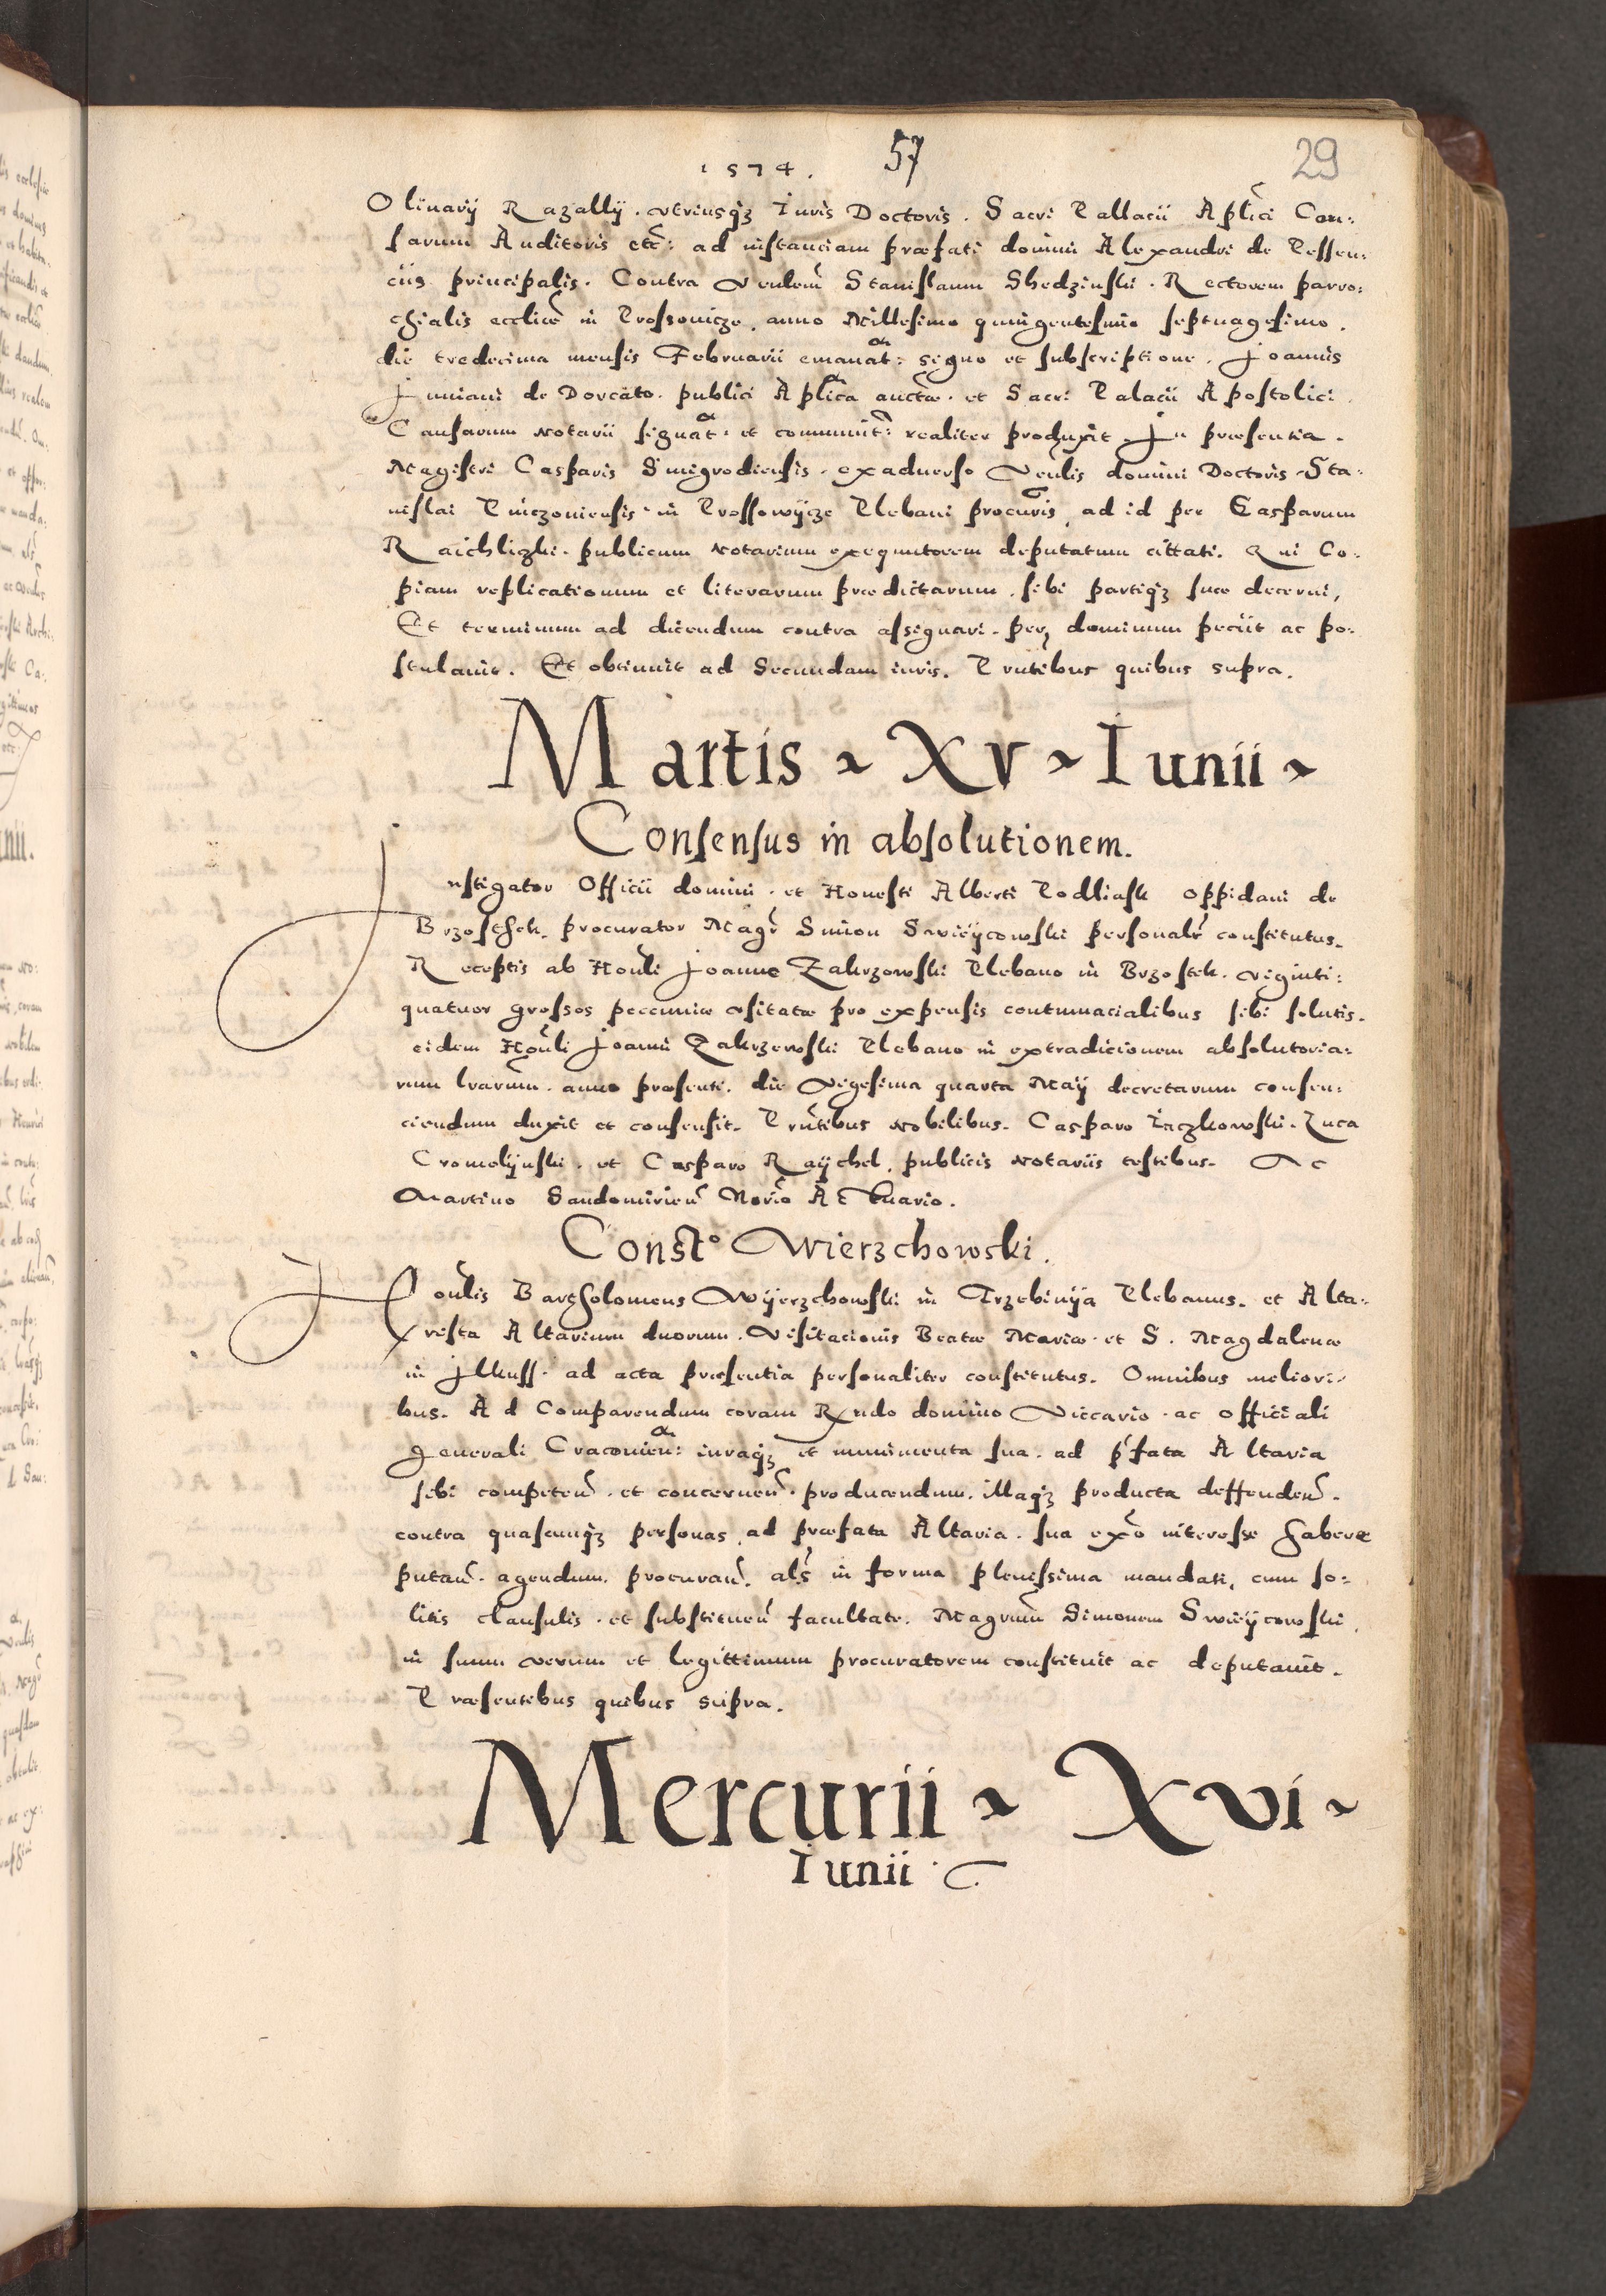 1574. 57 29
Olinarÿ Razallÿ. vtriusqz Iuris Doctoris. Sacri Pallacii Aplici Cau:
sarum Auditoris etc: ad instanciam præfati domini Alexandri de Pessen:
ciis principalis. Contra Venlem Stanislaum Skedzinski. Rectorem parro:
chialis eccliæ in Prossovicze, anno Millesimo quingentesimo septuagesimo.
die tredecima mensis Februarii emanat: signo et subscriptione. Joannis
Juniani de Dorcato. publici Aplica aucte. et Sacri Palacii Apostolici
Causarum Notarii signat. et communit: realiter produxit. In præsentia.
Magistri Casparis Smigrodiensis. exaduerso Venlis domini Doctoris Sta:
nislai Pinczoniensis in Prossowÿcze Plebani procuris, ad id per Casparum
Raichlizki. publicum Notarium exequutorem deputatum cittati. Qui Co:
piam replicationum et literarum prædictarum. sibi partiqz suæ decerni,
Et terminum ad dicendum contra assignari. per dominum peciit ac po:
stulauit. Et obtinuit ad Secundam iuris. Prntibus quibus supra.
Martis ~ XV ~ Iunii ~
Consensus in absolutionem.
Instigator Officii domini. et Honesti Alberti Podliask oppidani de
Brzosthek. procurator Magr Simon Swieÿcowski personalr constitutus.
Receptis ab Honli Joanne Zakrzowski Plebano in Brzostek. viginti:
quatuor grossos pecuniæ vsitatæ pro expensis contumacialibus sibi solutis.
eidem Honli Joanni Zakrzewski Plebano in extradicionem absolutoria:
rum lrarum. anno præsenti. die Vigesima quarta Maÿ decretarum consen:
ciendum duxit et consensit. Prntibus Nobilibus. Casparo Iaczkowski. Luca
Cromolÿnski. et Casparo Raÿchel, publicis Notariis testibus. Ac
Martino Sandomirien Norio Actuario.
Const° Wierzchowski.
Honlis Bartholomeus Wÿerzchowski in Trzebinÿa Plebanus. et Alta:
rista Altarium duorum. Visitacionis Beatæ Mariæ. et S. Magdalenæ
in Jlkuss. ad acta præsentia personaliter constitutus. Omnibus meliori:
bus. Ad Comparendum coram Rndo domino Viccario. ac officiali
generali Cracouien: iuraqz et munimenta sua. ad pfata Altaria
sibi competen. et concernen. producendum. illaqz producta deffenden.
contra quascunqz personas, ad præfata Altaria. sua exo interesse habere
putan. agendum. procuran. als in forma plenissima mandati, cum so:
litis clausulis. et substituen facultate. Magrum Simonem Swieÿcowski
in suum verum et legittimum procuratorem constituit ac deputauit.
Præsentibus quibus supra.
Mercurii ~ Xvi ~
Iunii.